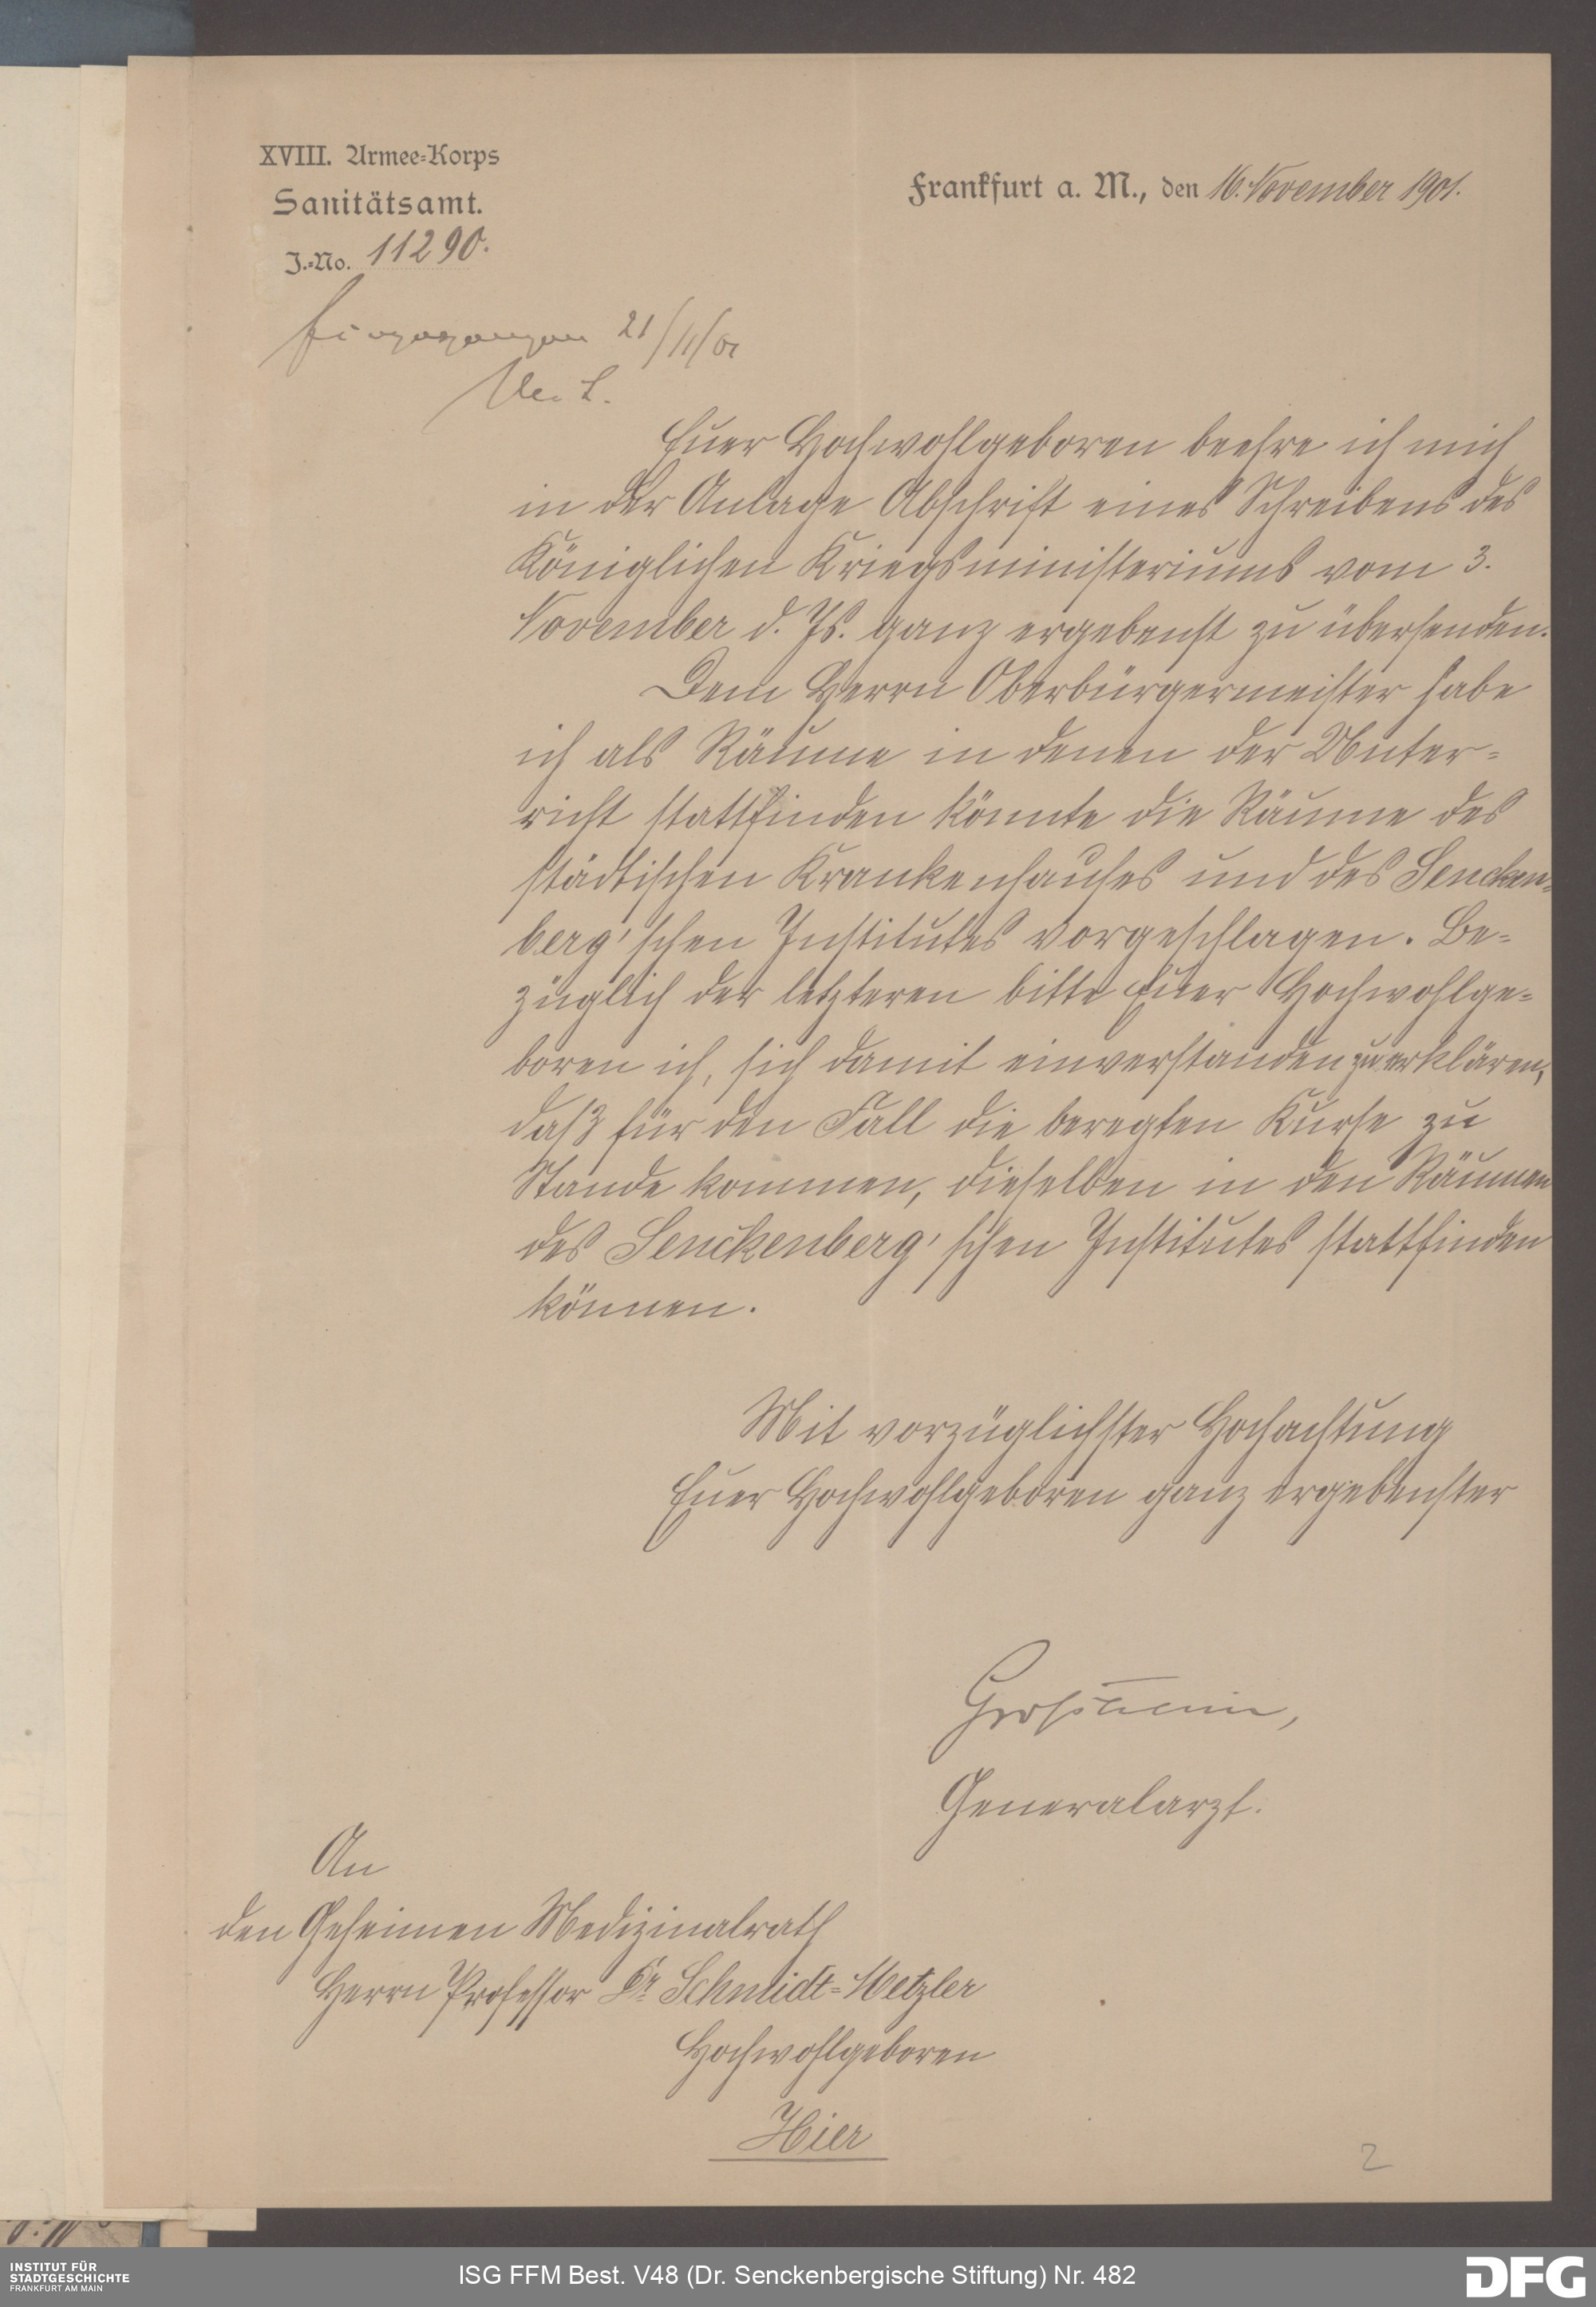 XVIII. Armee-Korps
Sanitätsamt.
J.-No. 11290.
Frankfurt a. M., den 16. November 1901.
Eingegangen 21/11/01
Euer Hochwohlgeboren beehre ich mich
in der Anlage Abschrift eines Schreibens des
Königlichen Kriegsministeriums vom 3.
November d. Js. ganz ergebenst zu übersenden.
Dem Herrn Oberbürgermeister habe
ich als Räume in denen der Unter-
richt stattfinden könnte die Räume des
städtischen Krankenhauses und des Sencken-
berg'schen Institutes vorgeschlagen. Be-
züglich der letzteren bitte Euer Hochwohlge-
boren ich, sich damit einverstanden zu erklären,
daß für den Fall die beregten Kurse zu
Stande kommen, dieselben in den Räumen
des Senckenberg'schen Institutes stattfinden
können.
Mit vorzüglichster Hochachtung
Euer Hochwohlgeboren ganz ergebenster
Großheim,
Generalarzt.
An
den Geheimen Medizinalrath
Herrn Professor Dr. Schmidt-Metzler
Hochwohlgeboren
Hier
2
INSTITUT FÜR
STADTGESCHICHTE
FRANKFURT AM MAIN
ISG FFM Best. V48 (Dr. Senckenbergische Stiftung) Nr. 482
DFG